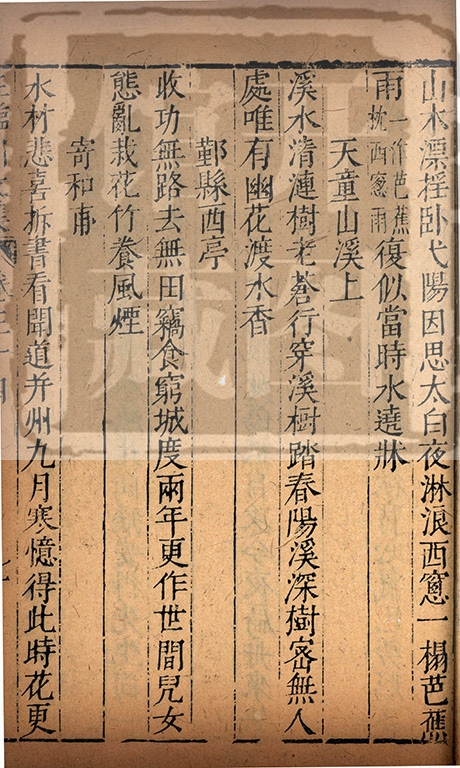 山木漂揺卧弋陽因思太白夜淋浪西窻一榻芭蕉
雨一作芭蕉枕西窻雨復似當時水遶牀
天童山溪上
溪水清漣樹老蒼行穿溪樹踏春陽溪深樹宻無人
處唯有幽花渡水香
鄞縣西亭
收功無路去無田竊食窮城度兩年更作世間兒女
態亂栽花竹養風煙
寄和甫
水村悲喜拆書看聞道并州九月寒憶得此時花更